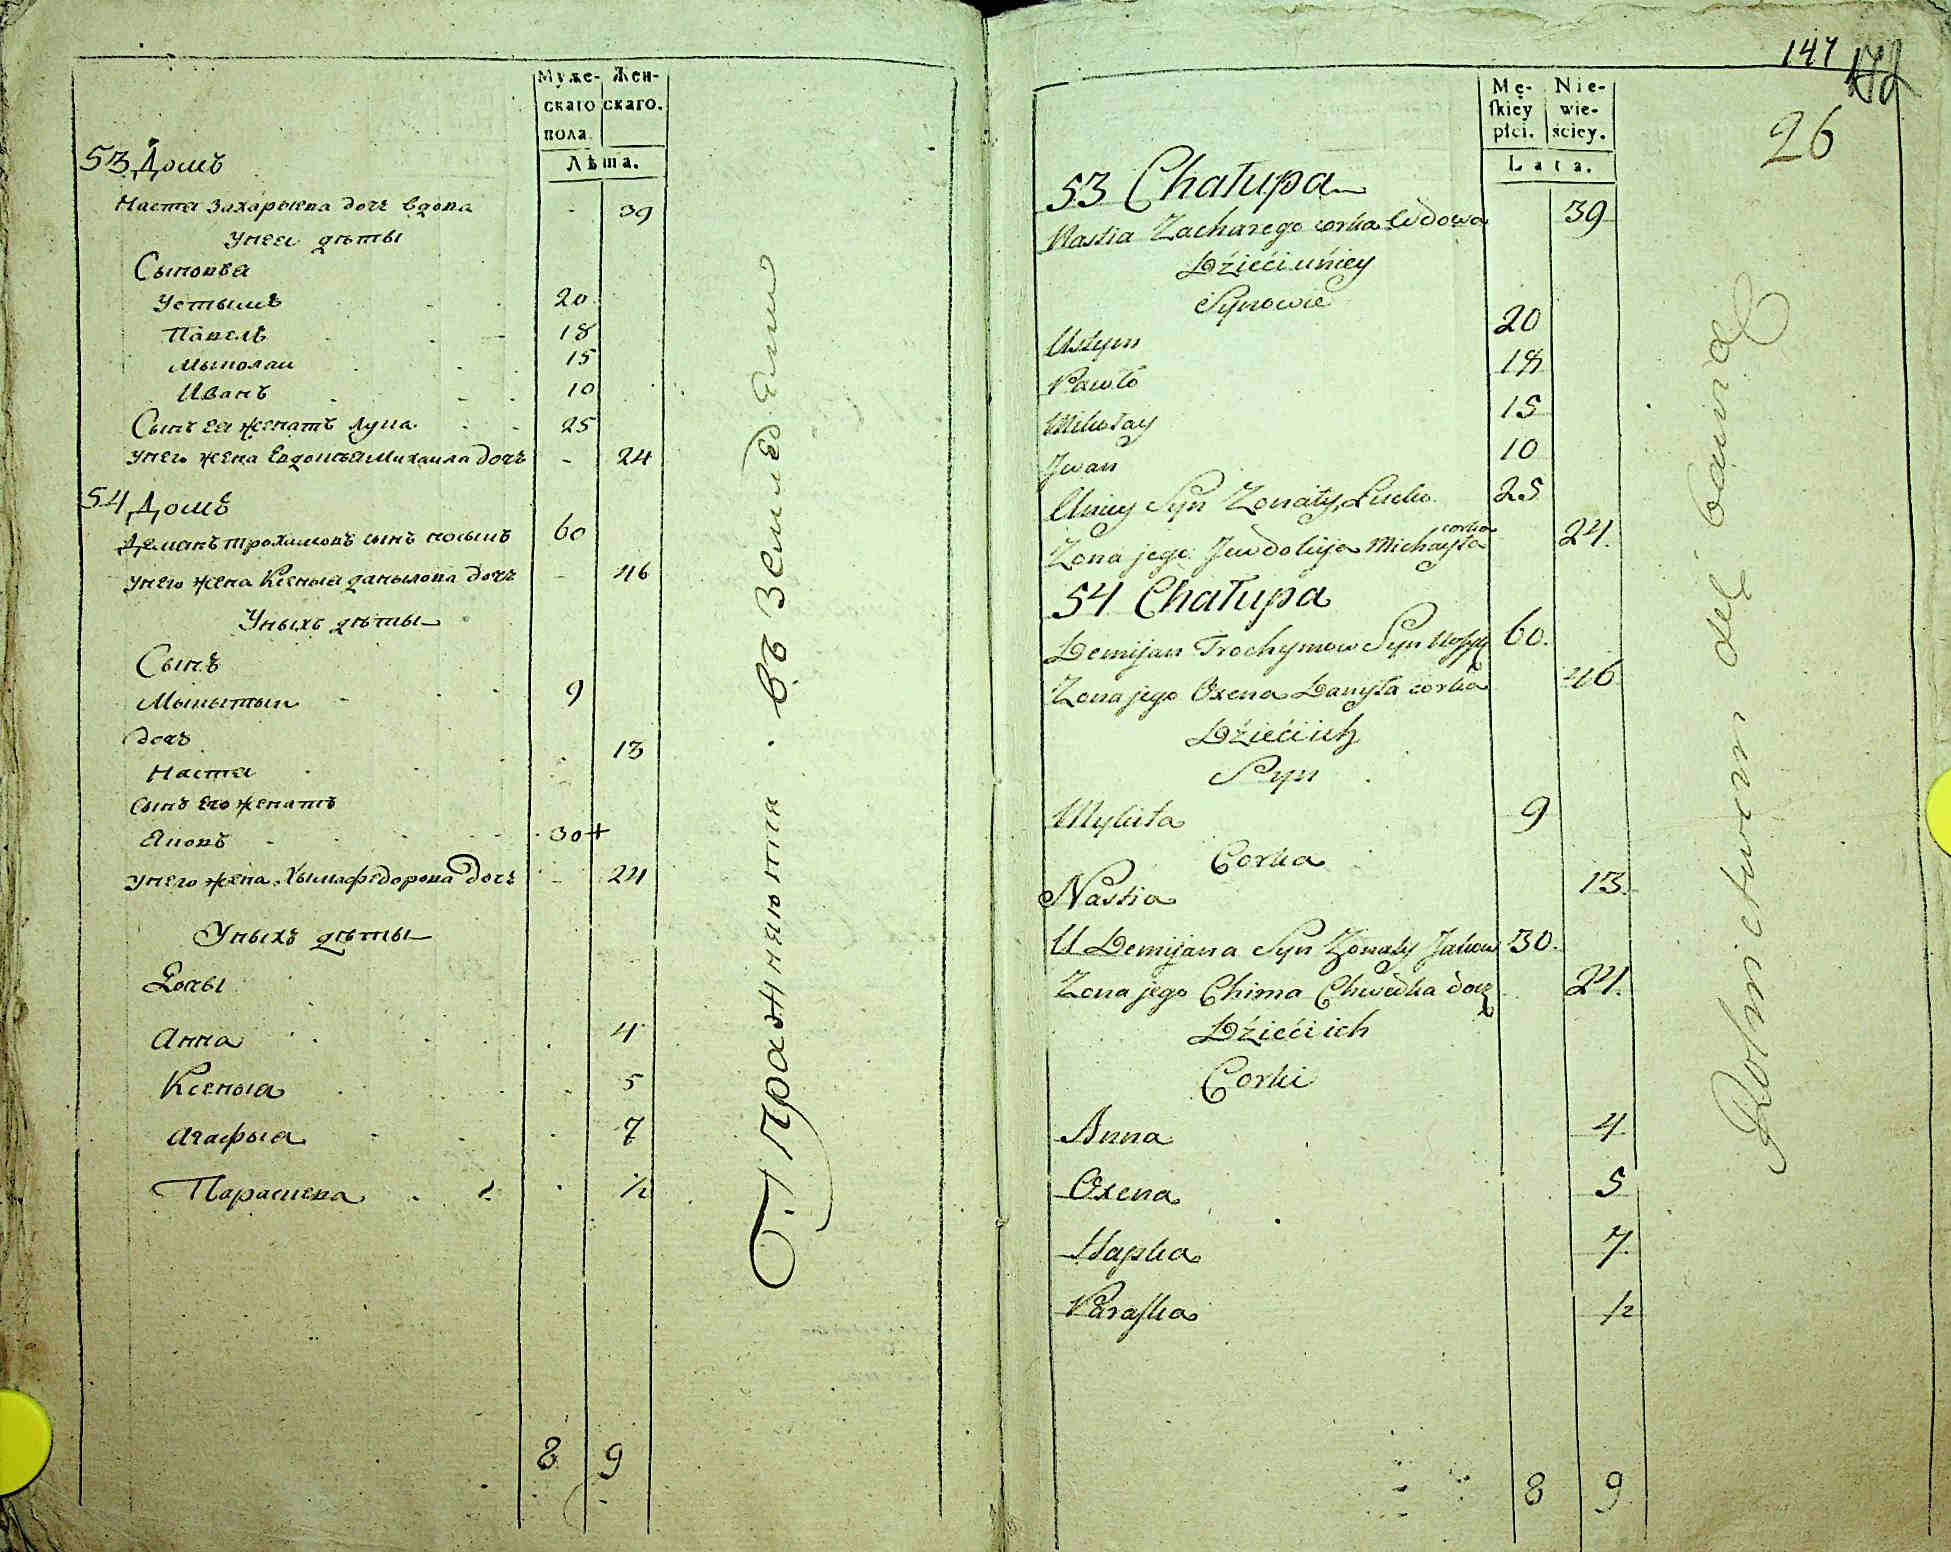 Муже-
скаго
пола.
Жен-
скаго.
Лѣта.
53 Домъ
Настя Захарыева дочъ вдова - 39
Унея дѣты
Сыновья
Устымъ 20
Павелъ 18
Мыколаи 15
Иванъ 10
Сынъ ея женатъ Лука 25
Унего жена Евдокыя Михаила дочъ - 24
54 Домъ
Демянъ Трохымовъ сынъ 60
Унего жена Ксеныя Данылова дочъ - 46
Уныхъ дѣты
Сынъ
Мыкытын 9
дочъ
13
Настя
Сынъ его женатъ
Яковъ 30+
Унего жена Хыма Федорова дочъ - 24
Уныхъ дѣты
Дочкы
Анна 4
Ксеныя 5
Агафыя 7
Параскева 1/2
8 9
Упражняются въ земледелии
147
26
Mę-
ſkiey
płci.
Nie-
wie-
ściey.
Lata.
53 Chałupa
Nastia Zacharego corka Wdowa 39
Dźieći uniey
Synowie
Ustym 20
Pawło 18
Mikołay 15
Jwan 10
Uniey Syn Żonaty Łuka 25
corka
Żona jego Jewdokija Michayła 24.
54 Chałupa
Demijan Trochymow Syn 60.
Żona jego Oxena Danyła corka 46
Dźieći ich
Syn
Mykita 9
Corka
Nastia 13.
U Demijana Syn Żonaty Jakow 30.
Żona jego Chima Chwedka 24.
Dźieći ich
Corki
Anna 4
Oxena 5
Hapka 7
Paraſka 1/2
8 9
Rolnictwem się bawią